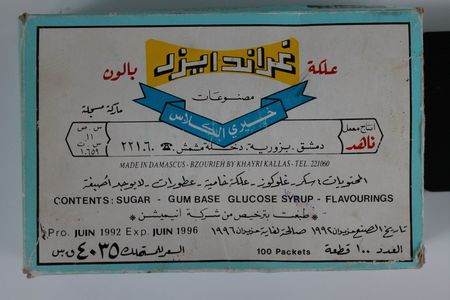 علكة غراندايزر بالون
مصنوعات
ماركة مسجلة
خيري الكلاس
انتاج معمل
ناهد
دمشق . بزورية . دخلة مشمش . ☎ ٢٢١٠٦٠
س . ص
١١
س . ت
١٠٦٥٢
MADE IN DAMASCUS - BZOURIEH BY KHAYRI KALLAS - TEL. 221060
المحتويات : سكر . غلوكوز . علكة خامية . عطورات . لا يوجد أصبغة
CONTENTS : SUGAR - GUM BASE GLUCOSE SYRUP - FLAVOURINGS
طبعت بترخيص من شركة انيميشن
تاريخ الصنع حزيران ١٩٩٢ صالحة لغاية حزيران ١٩٩٦ Pro. JUIN 1992 Exp. JUIN 1996
العدد ١٠٠ قطعة 100 Packets السعر للمستهلك ٤٠٣٥ ق س